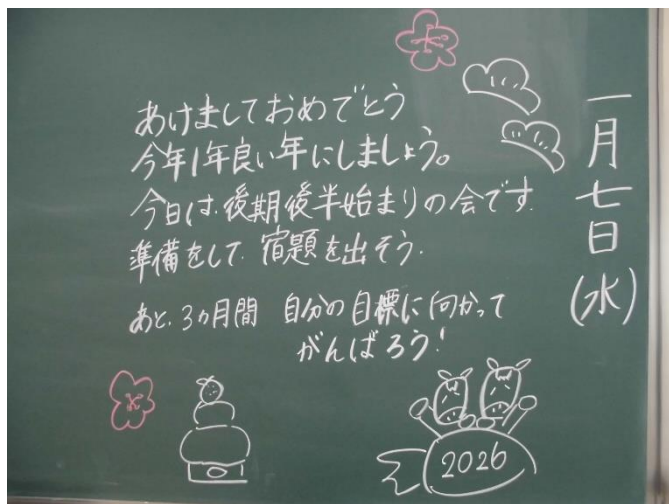 一月七日(水)
あけましておめでとう
今年1年良い年にしましょう。
今日は、後期後半始まりの会です。
準備をして、宿題を出そう。
あと、3ヵ月間 自分の目標に向かって
がんばろう!
2026